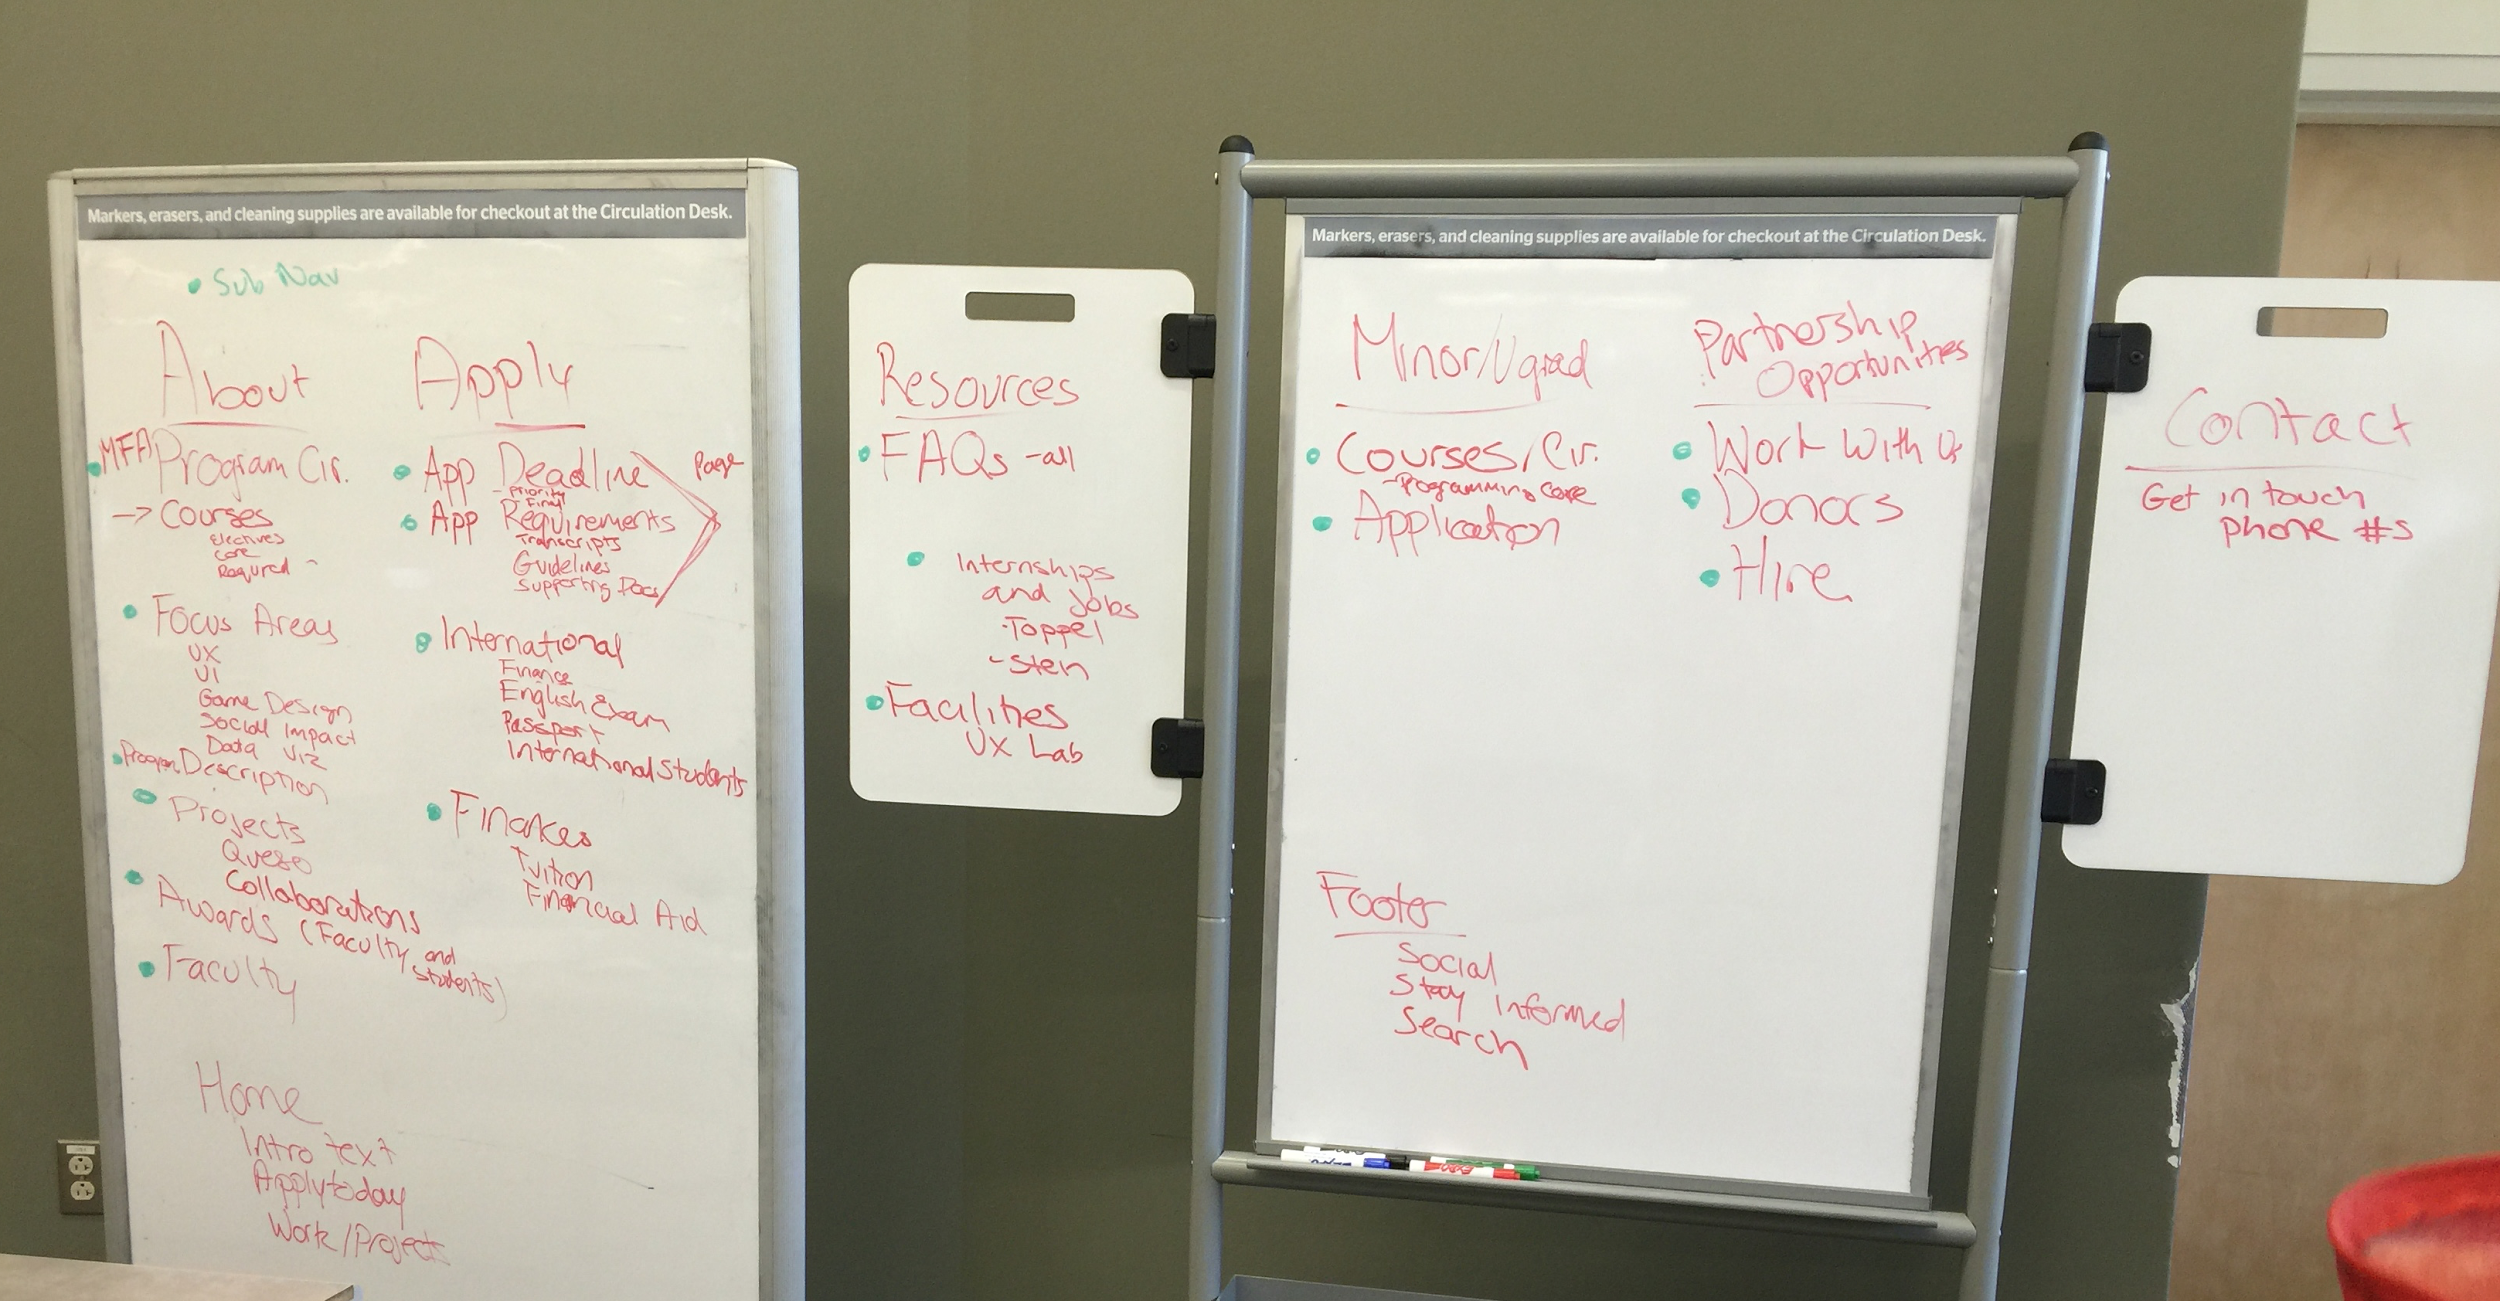 Markers, erasers, and cleaning supplies are available for checkout at the Circulation Desk.
• Sub Nav
About
• MFA Program Cir.
-> Courses
Electives
Core
Required
• Focus Areas
UX
UI
Game Design
Social Impact
Data Viz
• Program Description
• Projects
Queso
Collaborations
• Awards (Faculty and Students)
• Faculty
Home
Intro text
Apply today
Work/Projects
Apply
• App Deadline
- Priority
- Final
• App Requirements
Transcripts
Guidelines
Supporting Docs
Page
• International
Finance
English Exam
Passport
International Students
• Finances
Tuition
Financial Aid
Resources
• FAQs - all
• Internships
and Jobs
- Toppel
- Stein
• Facilities
UX Lab
Markers, erasers, and cleaning supplies are available for checkout at the Circulation Desk.
Minor/Ugrad
• Courses/Cir.
- Programming Core
• Application
Partnership
Opportunities
• Work With Us
• Donors
• Hire
Footer
Social
Stay Informed
Search
Contact
Get in touch
phone #s